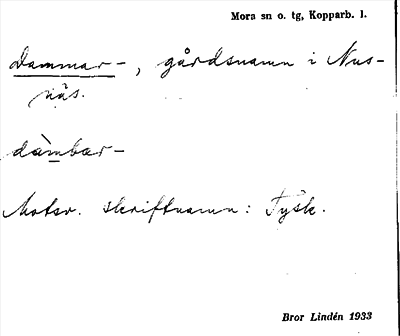 Mora sn o. tg, Kopparb. l.
Dammar-, gårdsnamn i Nus-
näs.
dàmbar-
Motsv. skriftnamn: Tysk.
Bror Lindén 1933